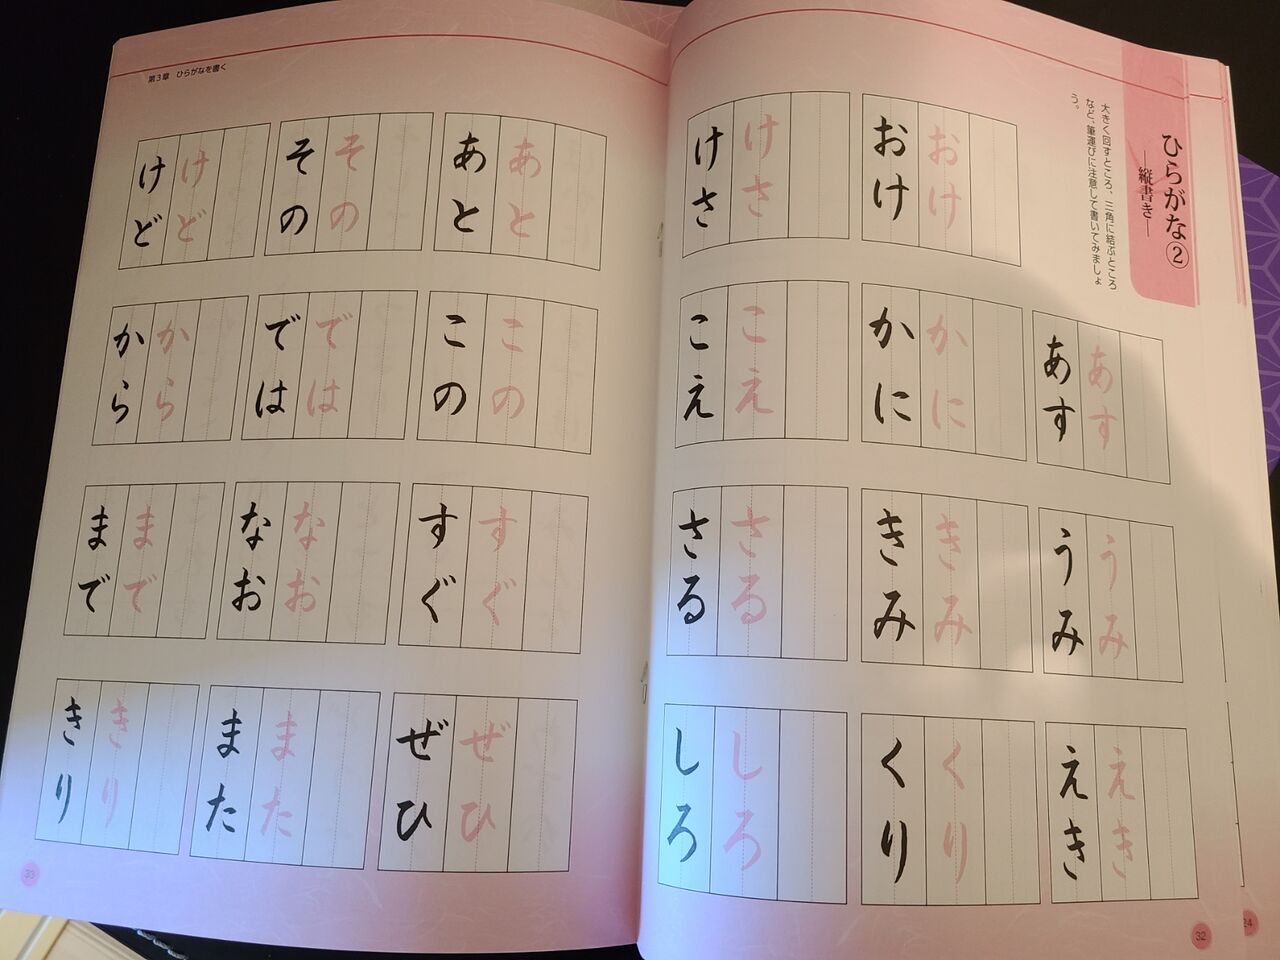 ひらがな②
―縦書き―
大きく回すところ、三角に結ぶところ
など、筆運びに注意して書いてみましょ
う。
あす
あす
うみ
うみ
えき
えき
おけ
おけ
かに
かに
きみ
きみ
くり
くり
けさ
けさ
こえ
こえ
さる
さる
しろ
しろ
32
24
第3章 ひらがなを書く
あと
あと
この
この
すぐ
すぐ
ぜひ
ぜひ
その
その
では
では
なお
なお
また
また
けど
けど
から
から
まで
まで
きり
きり
33